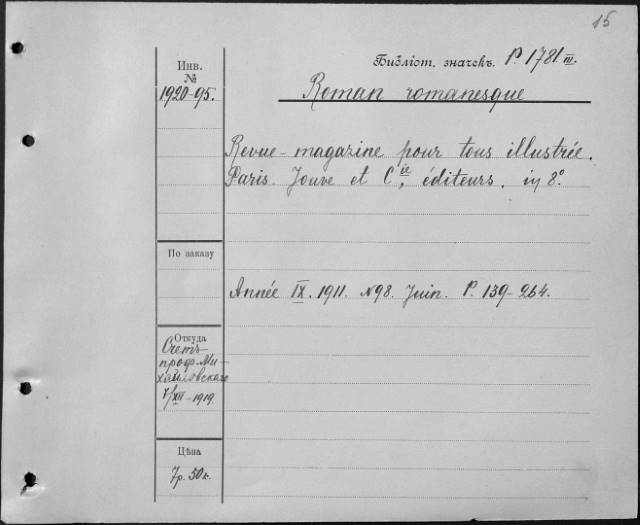 15
Инв.
№
1920-95.
Библіот. значекъ. P. 1781.III.
Roman romanesque
Revue-magazine pour tous illustrée.
Paris. Jouve et Cie, éditeurs. in 8º.
По заказу
Année IX. 1911. N98. Juin. P. 139-264.
Откуда
Счетъ
проф. Ми-
хайловскаго
7/XII-1919.
Цѣна
7р. 50к.